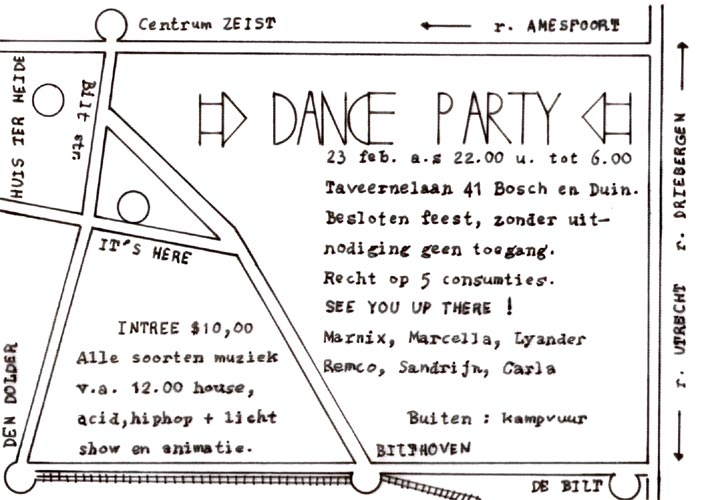 Centrum ZEIST
r. AMESFOORT
HUIS TER HEIDE
Blt str.
DANCE PARTY
23 feb. a.s 22.00 u. tot 6.00
Taveernelaan 41 Bosch en Duin.
Besloten feest, zonder uit-
nodiging geen toegang.
Recht op 5 consumties.
SEE YOU UP THERE !
Marnix, Marcella, Lyander
Remco, Sandrijn, Carla
Buiten : kampvuur
IT'S HERE
INTREE $10,00
Alle soorten muziek
v.a. 12.00 house,
acid,hiphop + licht
show en animatie.
DEN DOLDER
BILTHOVEN
DE BILT
r. UTRECHT
r. DRIEBERGEN